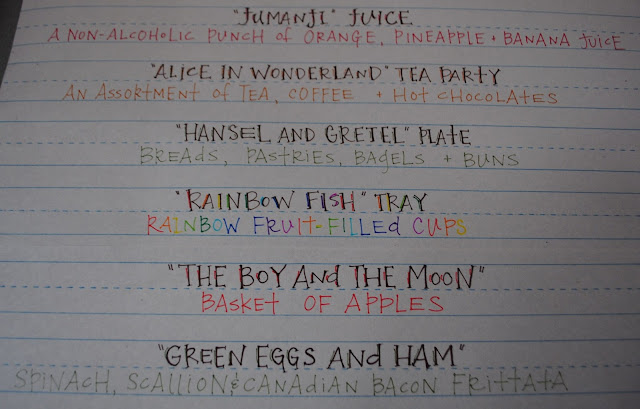 "JUMANJI" JUICE
A NON-ALCOHOLIC PUNCH of ORANGE, PINEAPPLE + BANANA JUICE
"ALICE IN WONDERLAND" TEA PARTY
AN ASSORTMENT of TEA, COFFEE + HOT CHOCOLATES
"HANSEL AND GRETEL" PLATE
BREADS, PASTRIES, BAGELS + BUNS
"RAINBOW FISH" TRAY
RAINBOW FRUIT-FILLEd CUPS
"THE BOY ANd THE MOON"
BASKET OF APPLES
"GREEN EGGS ANd HAM"
SPINACH, SCALLION & CANAdIAN BACON FRITTATA